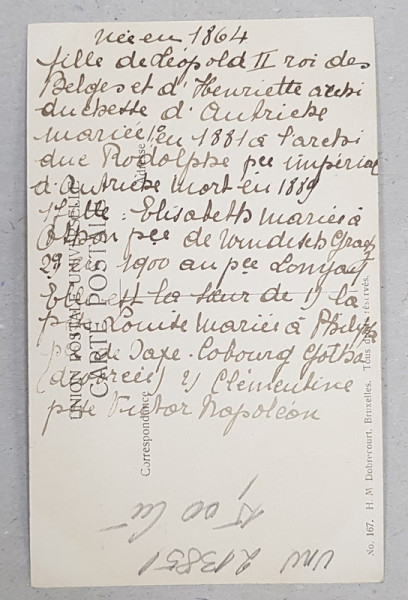 née en 1864
fille de Léopold II roi des
Belges et d'Henriette archi
duchesse d'Autriche
mariée 1º en 1881 à l'archi
duc Rodolphe pce impérial
d'Autriche mort en 1889
fille : Elisabeth mariée à
pce de Windisch Graez
2º 1900 au pce Lonyay
Elle est la sœur de 1) la
Louise mariée à Philippe
de Saxe-Cobourg Gotha
(divorcée) 2) Clémentine
psse Victor Napoléon
UNION POSTALE UNIVERSELLE
CARTE POSTALE
Correspondance
Adresse
No. 167. H. M Dobrecourt, Bruxelles. Tous droits réservés.
213851